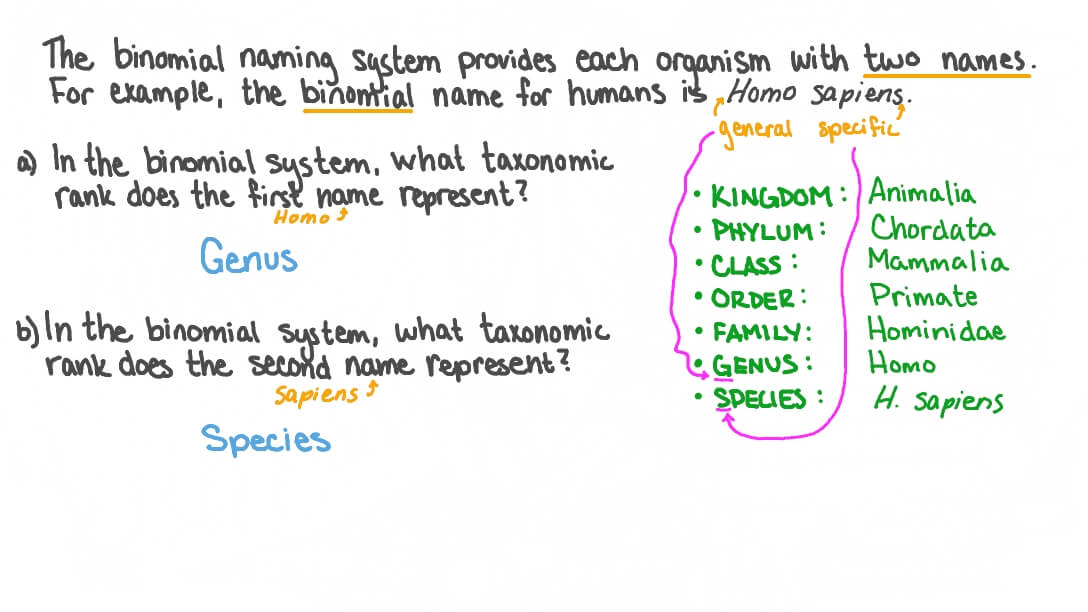 The binomial naming system provides each organism with two names.
For example, the binomial name for humans is Homo sapiens.
general specific
a) In the binomial system, what taxonomic
rank does the first name represent?
Homo
Genus
b) In the binomial system, what taxonomic
rank does the second name represent?
Sapiens
Species
• KINGDOM: Animalia
• PHYLUM: Chordata
• CLASS: Mammalia
• ORDER: Primate
• FAMILY: Hominidae
• GENUS: Homo
• SPECIES: H. sapiens